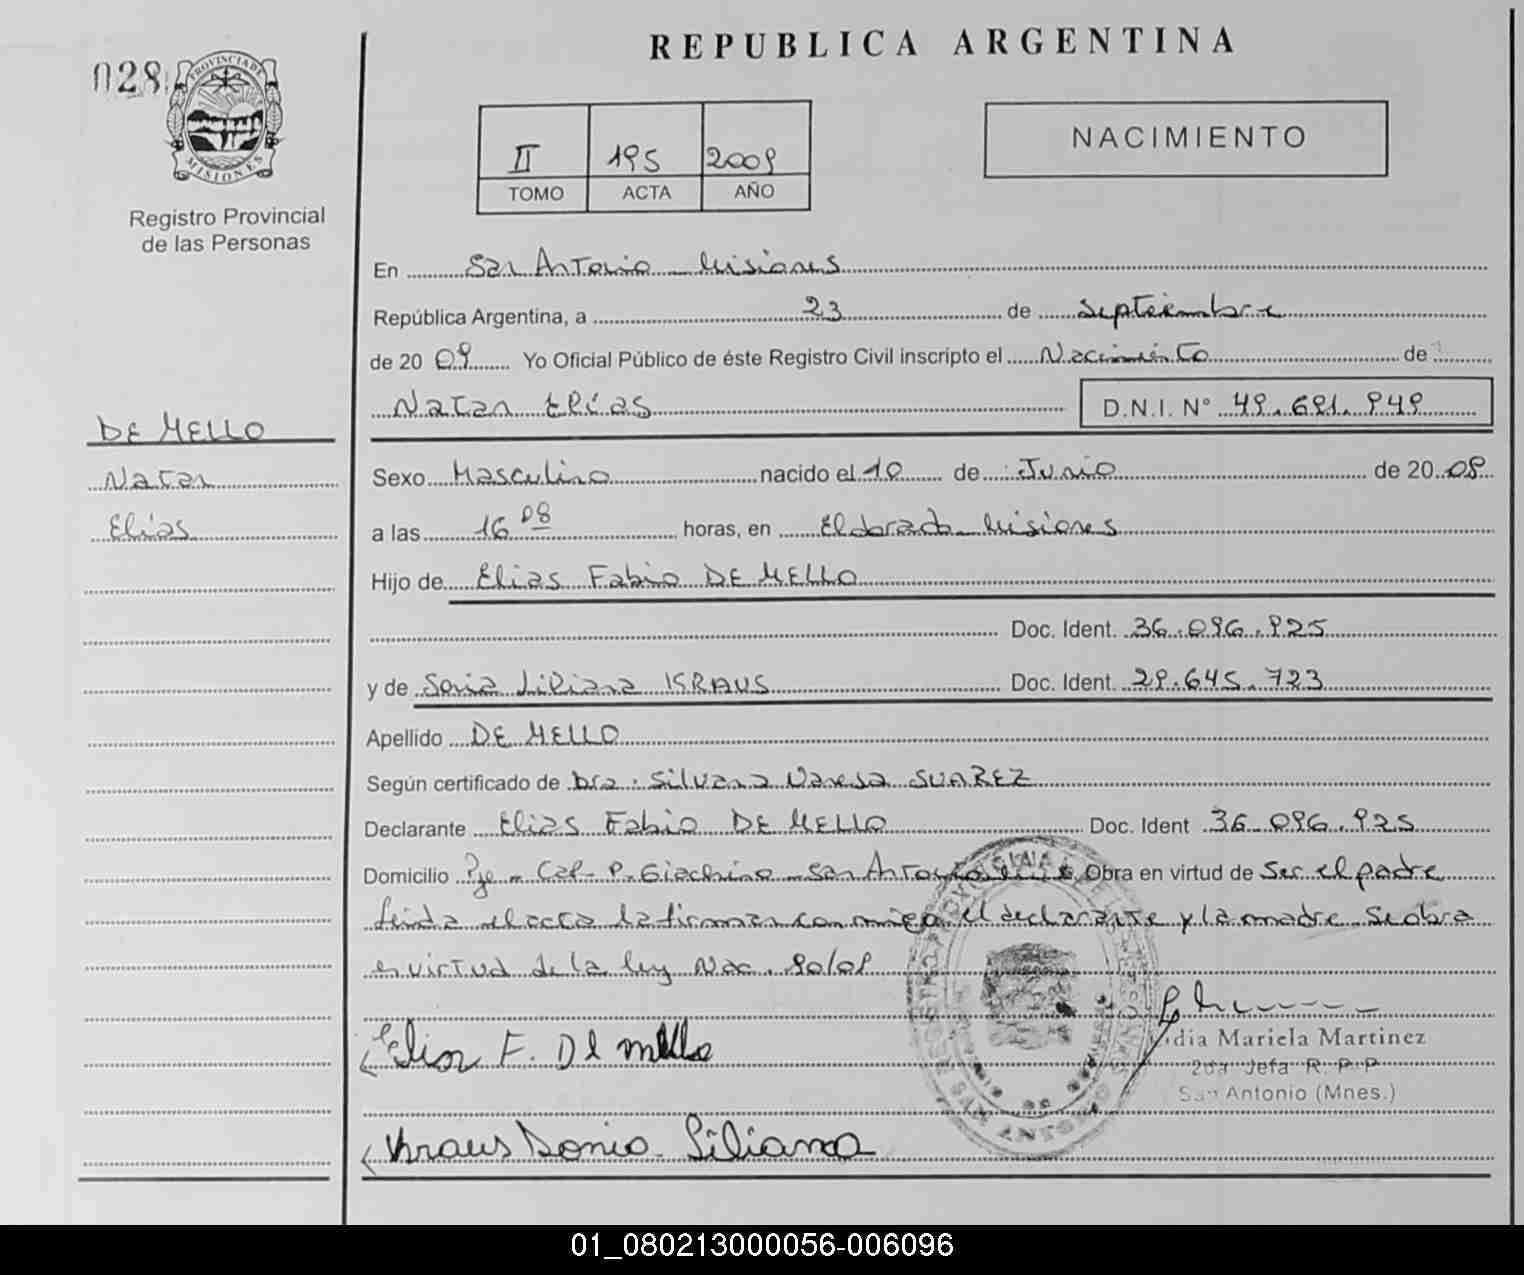 REPUBLICA ARGENTINA
028
PROVINCIA DE MISIONES
Registro Provincial
de las Personas
II 195 2009
TOMO ACTA AÑO
NACIMIENTO
En San Antonio - Misiones
República Argentina, a 23 de Septiembre
de 20 09 Yo Oficial Público de éste Registro Civil inscripto el Nacimiento de
Natan Elías D.N.I. N° 49.691.949
DE MELLO
Natan
Elías
Sexo Masculino nacido el 10 de Junio de 20 09
a las 16 08 horas, en Eldorado - Misiones
Hijo de Elias Fabio DE MELLO
Doc. Ident. 36.096.925
y de Sonia Liliana KRAUS Doc. Ident. 29.645.723
Apellido DE MELLO
Según certificado de Dra. Silvana Vanesa SUAREZ
Declarante Elias Fabio DE MELLO Doc. Ident 36.096.925
Domicilio Pje - Cap - P. Giachino - San Antonio Obra en virtud de Ser el padre
leida el acta la firman conmigo el declarante y la madre Se obra
en virtud de la ley Nac. 90/09
Elias F. De mello
Lidia Mariela Martinez
2da Jefa R. P. P
San Antonio (Mnes.)
Kraus Sonia Liliana
01_080213000056-006096